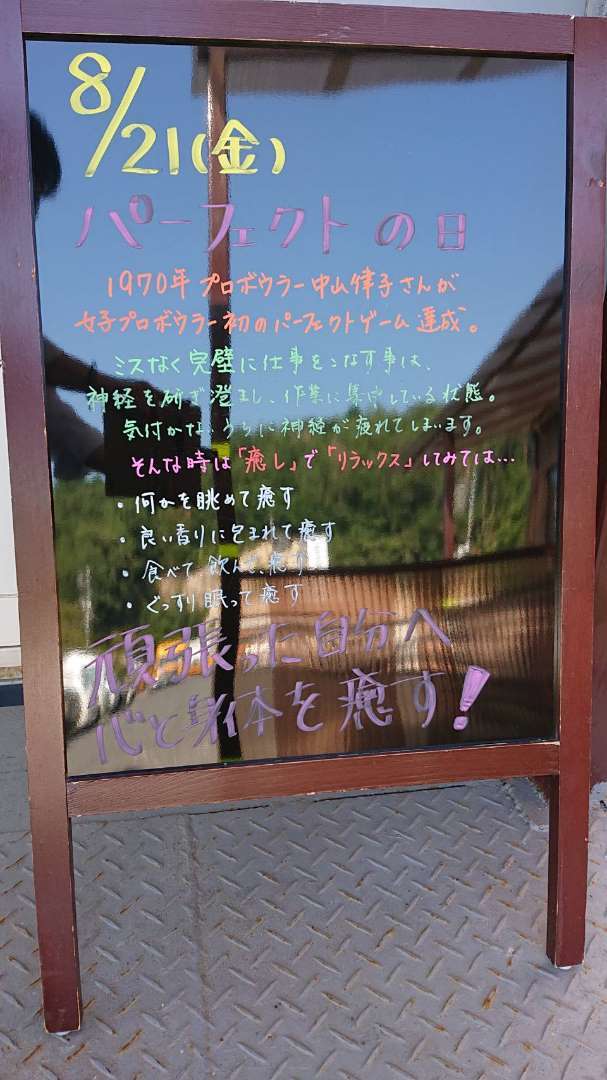 8/21(金)
パーフェクトの日
1970年プロボウラー中山律子さんが
女子プロボウラー初のパーフェクトゲーム達成。
ミスなく完璧に仕事をこなす事は、
神経を研ぎ澄まし、作業に集中している状態。
気付かないうちに神経が疲れてしまいます。
そんな時は「癒し」で「リラックス」してみては…
・何かを眺めて癒す
・良い香りに包まれて癒す
・食べて飲んで癒す
・ぐっすり眠って癒す
頑張った自分へ
心と身体を癒す!